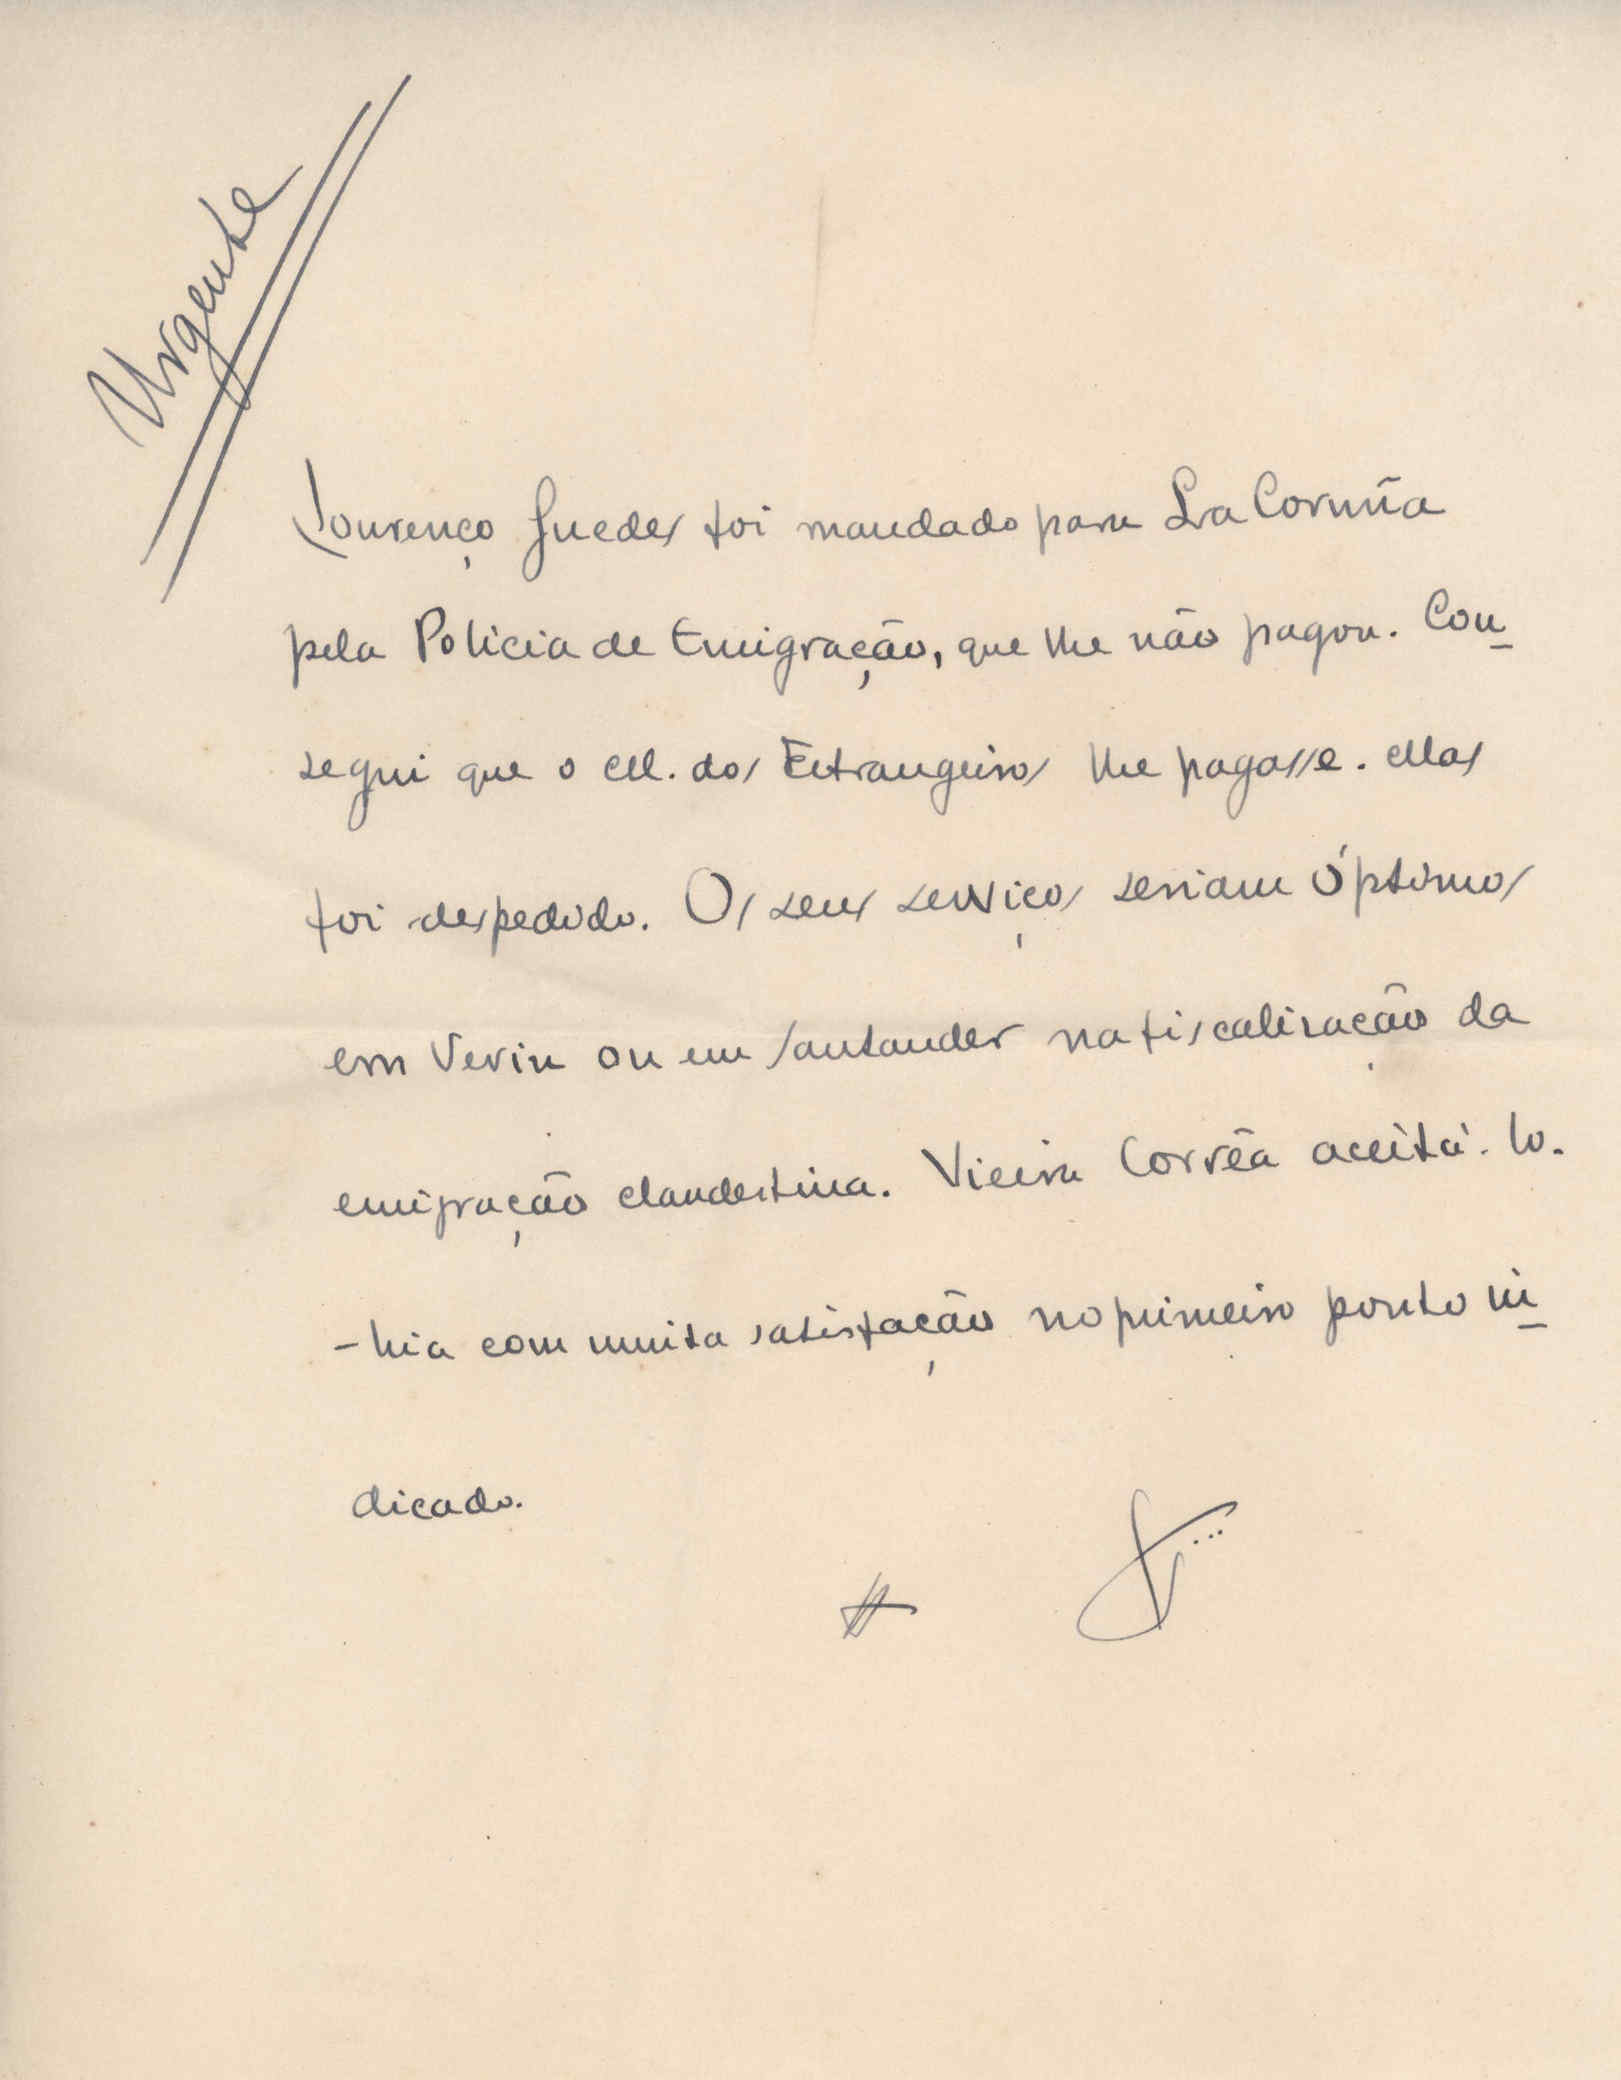 Urgente
Lourenço Guedes foi mandado para La Coruña
pela Policia de Emigração, que lhe não pagou. Con-
segui que o M. dos Estrangeiros lhe pagasse. Mas
foi despedido. Os seus serviços seriam óptimos
em Verin ou em Santander na fiscalização da
emigração clandestina. Vieira Corrêa aceitá-lo-
-hia com muita satisfação no primeiro ponto in-
dicado.